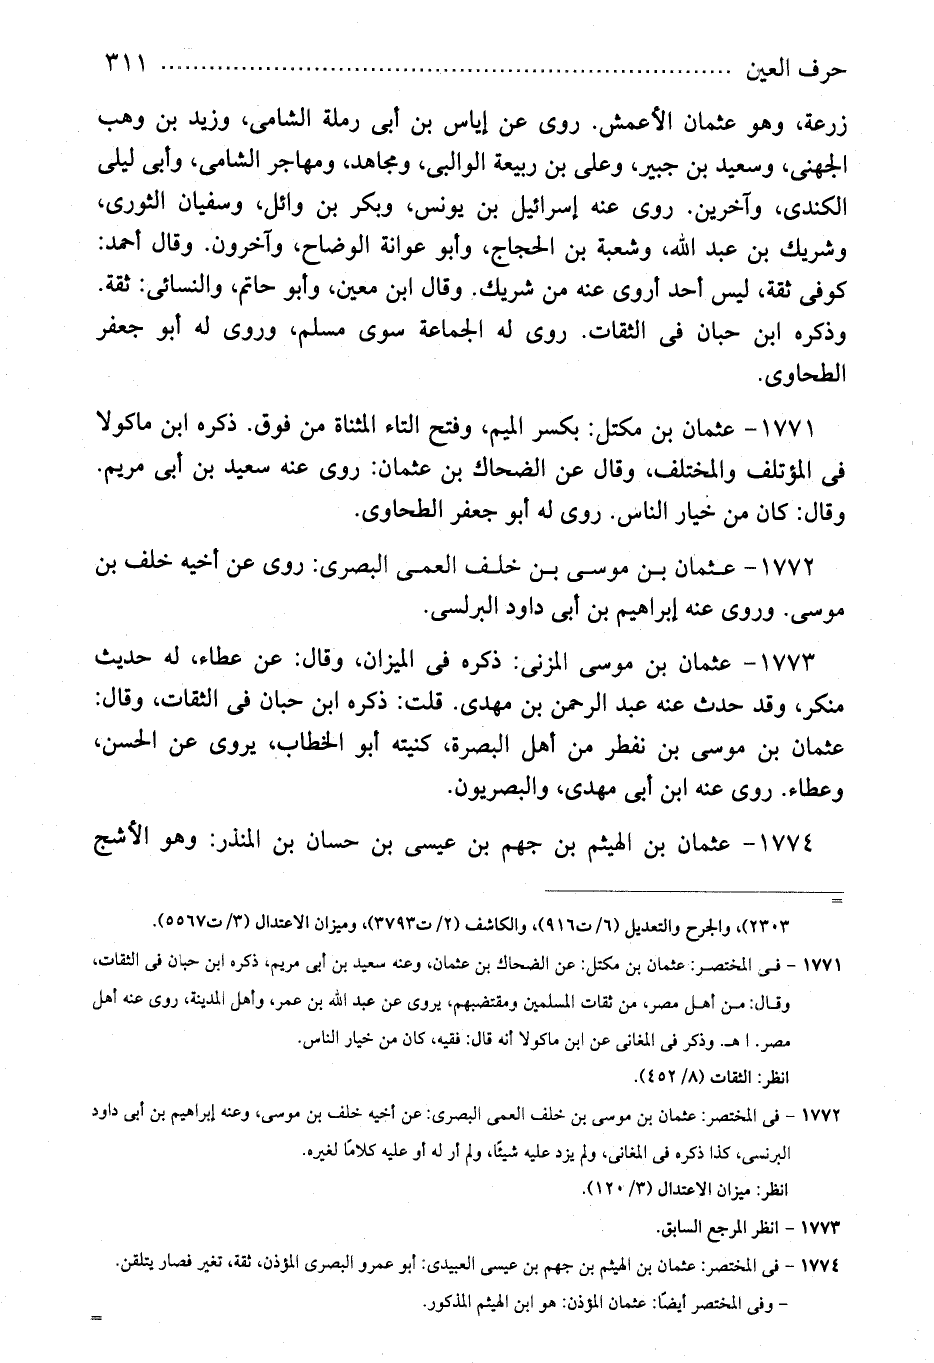 حرف العين ........................................................................ ٣١١
زرعة، وهو عثمان الأعمش. روى عن إياس بن أبى رملة الشامى، وزيد بن وهب
الجهنى، وسعيد بن جبير، وعلى بن ربيعة الوالبى، ومجاهد، ومهاجر الشامى، وأبى ليلى
الكندى، وآخرين. روى عنه إسرائيل بن يونس، وبكر بن وائل، وسفيان الثورى،
وشريك بن عبد الله، وشعبة بن الحجاج، وأبو عوانة الوضاح، وآخرون. وقال أحمد:
كوفى ثقة، ليس أحد أروى عنه من شريك. وقال ابن معين، وأبو حاتم، والنسائى: ثقة.
وذكره ابن حبان فى الثقات. روى له الجماعة سوى مسلم، وروى له أبو جعفر
الطحاوى.
١٧٧١- عثمان بن مكتل: بكسر الميم، وفتح التاء المثناة من فوق. ذكره ابن ماكولا
فى المؤتلف والمختلف، وقال عن الضحاك بن عثمان: روى عنه سعيد بن أبى مريم.
وقال: كان من خيار الناس. روى له أبو جعفر الطحاوى.
١٧٧٢- عثمان بن موسى بن خلف العمى البصرى: روى عن أخيه خلف بن
موسى. وروى عنه إبراهيم بن أبى داود البرلسى.
١٧٧٣- عثمان بن موسى المزنى: ذكره فى الميزان، وقال: عن عطاء، له حديث
منكر، وقد حدث عنه عبد الرحمن بن مهدى. قلت: ذكره ابن حبان فى الثقات، وقال:
عثمان بن موسى بن نفطر من أهل البصرة، كنيته أبو الخطاب، يروى عن الحسن،
وعطاء. روى عنه ابن أبى مهدى، والبصريون.
١٧٧٤- عثمان بن الهيثم بن جهم بن عيسى بن حسان بن المنذر: وهو الأشج
=
٢٣٠٣)، والجرح والتعديل (٦/ ت٩١٦)، والكاشف (٢/ ت٣٧٩٣)، وميزان الاعتدال (٣/ ت٥٥٦٧).
١٧٧١ - فى المختصر: عثمان بن مكتل: عن الضحاك بن عثمان، وعنه سعيد بن أبى مريم، ذكره ابن حبان فى الثقات،
وقال: من أهل مصر، من ثقات المسلمين ومقتضبهم، يروى عن عبد الله بن عمر، وأهل المدينة، روى عنه أهل
مصر. ا هـ. وذكر فى المغانى عن ابن ماكولا أنه قال: فقيه، كان من خيار الناس.
انظر: الثقات (٨/ ٤٥٢).
١٧٧٢ - فى المختصر: عثمان بن موسى بن خلف العمى البصرى: عن أخيه خلف بن موسى، وعنه إبراهيم بن أبى داود
البرنسى، كذا ذكره فى المغانى، ولم يزد عليه شيئًا، ولم أر له أو عليه كلامًا لغيره.
انظر: ميزان الاعتدال (٣/ ١٢٠).
١٧٧٣ - انظر المرجع السابق.
١٧٧٤ - فى المختصر: عثمان بن الهيثم بن جهم بن عيسى العبيدى: أبو عمرو البصرى المؤذن، ثقة، تغير فصار يتلقن.
- وفى المختصر أيضًا: عثمان المؤذن: هو ابن الهيثم المذكور.
=